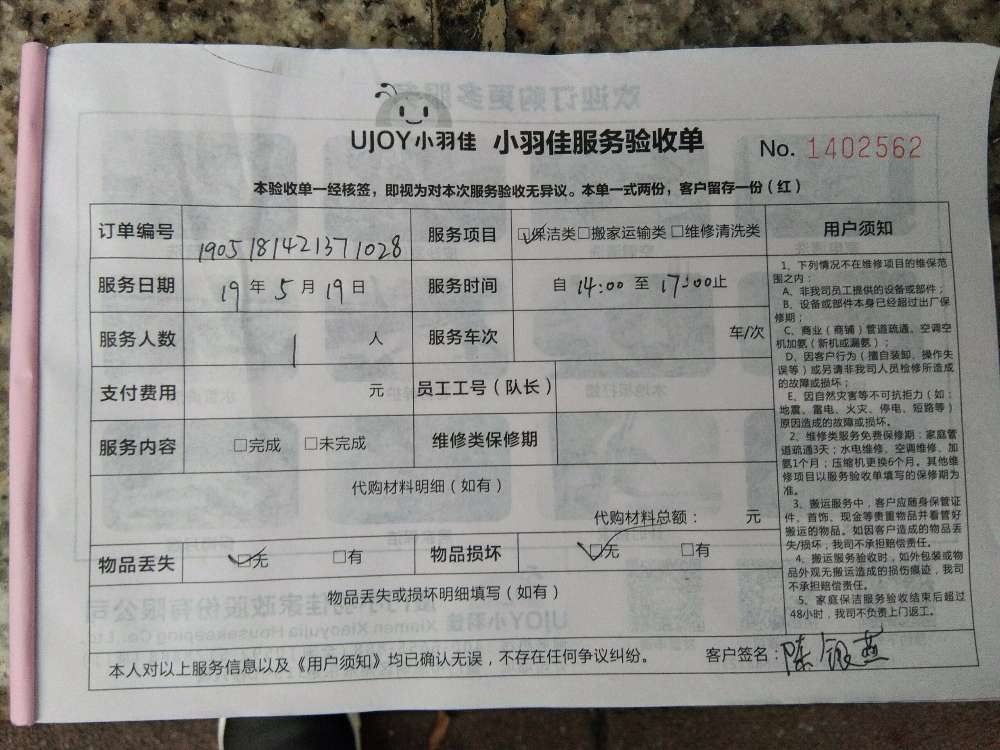 UJOY小羽佳 小羽佳服务验收单 No. 1402562
本验收单一经核签，即视为对本次服务验收无异议。本单一式两份，客户留存一份（红）
订单编号 1905181421371028 服务项目 ☑保洁类□搬家运输类□维修清洗类
服务日期 19年5月19日 服务时间 自14:00至17:00止
服务人数 1人 服务车次 车/次
支付费用 元 员工工号（队长）
服务内容 □完成 □未完成 维修类保修期
代购材料明细（如有）
代购材料总额： 元
物品丢失 ☑无 □有 物品损坏 ☑无 □有
物品丢失或损坏明细填写（如有）
本人对以上服务信息以及《用户须知》均已确认无误，不存在任何争议纠纷。 客户签名：陈银燕
用户须知
1、下列情况不在维修项目的维保范
围之内：
A、非我司员工提供的设备或部件；
B、设备或部件本身已经超过出厂保
修期；
C、商业（商铺）管道疏通、空调空
机加氨（新机或漏氨）；
D、因客户行为（擅自装卸、操作失
误等）或另请非我司人员检修所造成
的故障或损坏；
E、因自然灾害等不可抗拒力（如：
地震、雷电、火灾、停电、短路等）
原因造成的故障或损坏。
2、维修类服务免费保修期：家庭管
道疏通3天；水电维修、空调维修、加
氨1个月；压缩机更换6个月。其他维
修项目以服务验收单填写的保修期为
准。
3、搬运服务中，客户应随身保管证
件、首饰、现金等贵重物品并看管好
搬运的物品。如因客户造成的物品丢
失/损坏，我司不承担赔偿责任。
4、搬运服务验收时，如外包装或物
品外观无搬运造成的损伤痕迹，我司
不承担赔偿责任。
5、家庭保洁服务验收结束后超过
48小时，我司不负责上门返工。